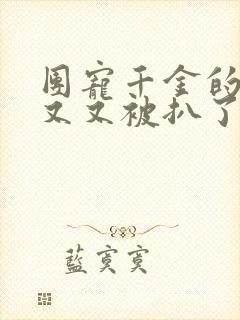 团宠千金的
又又被扒了
藍寞寞